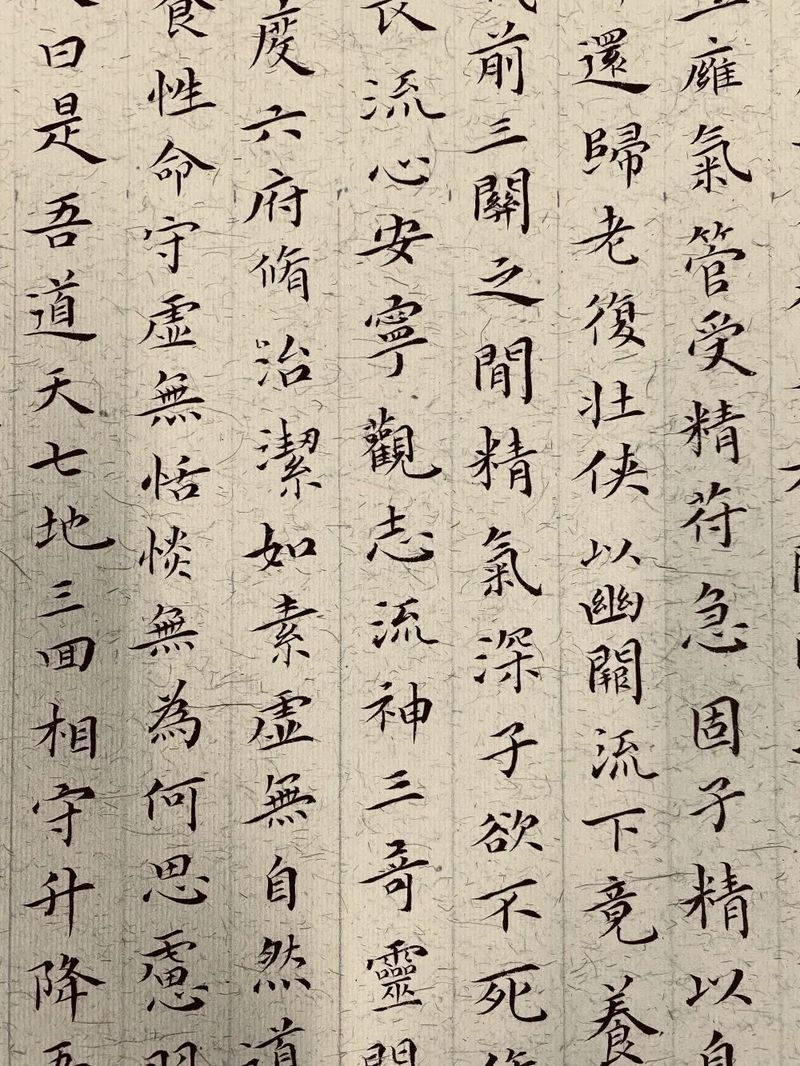 廱氣管受精苻急固子精以自
還歸老復壯俠以幽闕流下竟養
前三關之閒精氣深子欲不死
長流心安寧觀志流神三奇靈
度六府脩治潔如素虛無自然道
養性命守虛無恬惔無為何思慮
曰是吾道天七地三回相守升降